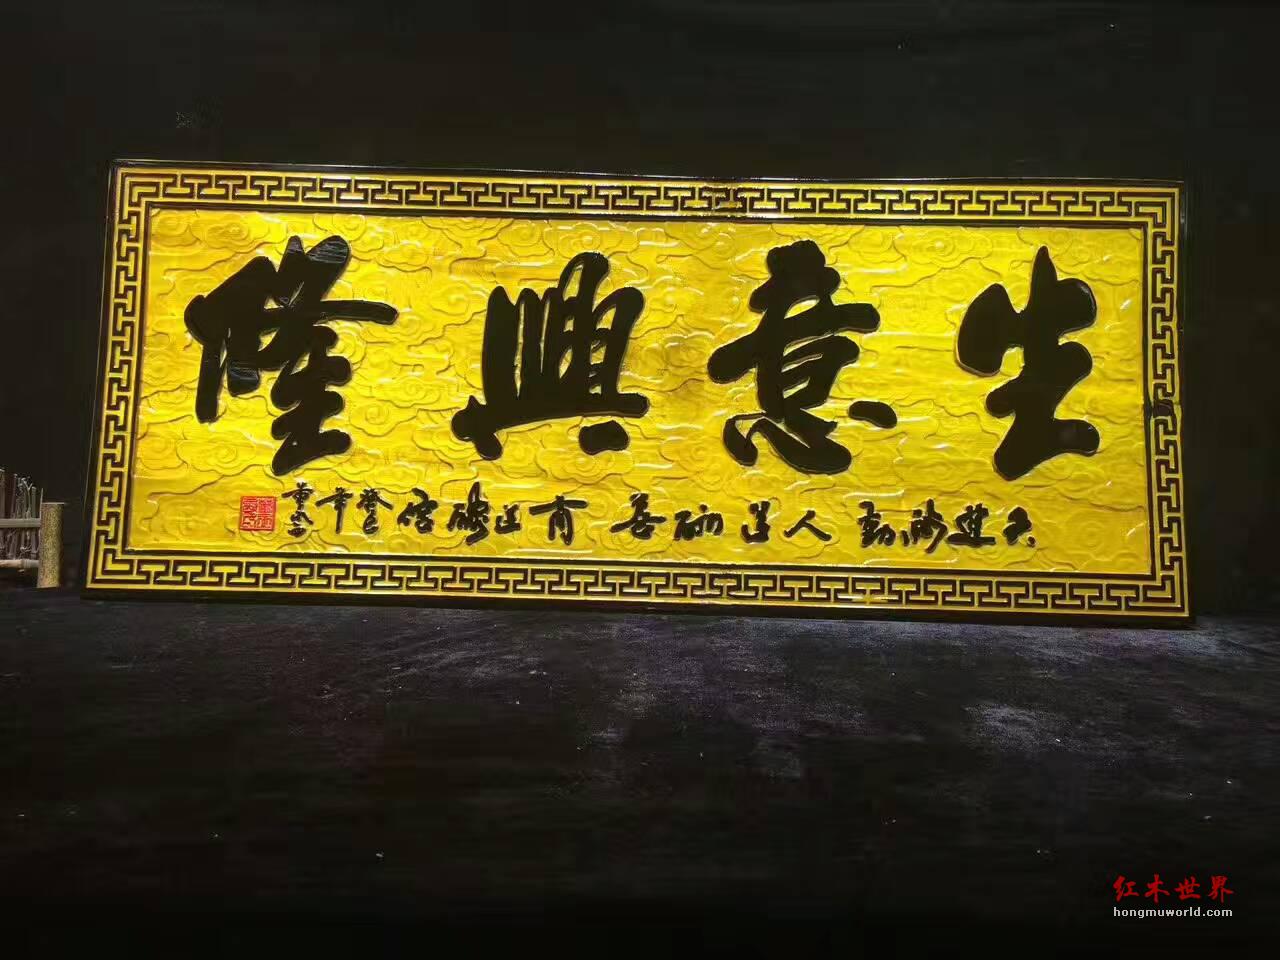 生意興隆
天道酬勤 人道酬善 商道酬信 癸巳年
红木世界
hongmuworld.com